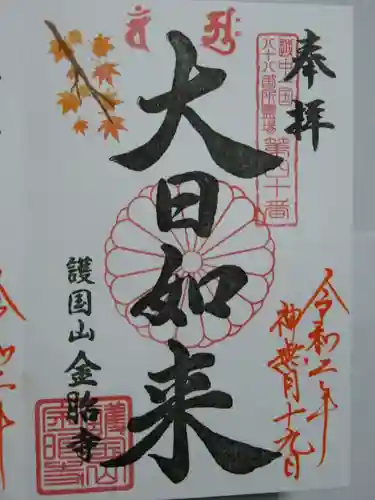 奉拝
越中一国
八十八箇所霊場
第四十番
大日如来
令和二年
神無月十九日
護国山金胎寺